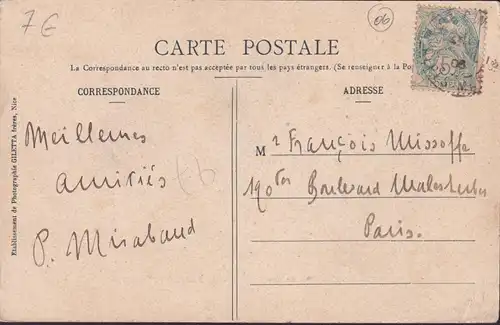 7 €
06
CARTE POSTALE
La Correspondance au recto n'est pas acceptée par tous les pays étrangers. (Se renseigner à la Po
CORRESPONDANCE
ADRESSE
Etablissement de Photographie GILETTA frères, Nice
Meilleures
amitiés
P. Mirabaud
Mr François Missoffe
190 bis Boulevard Malesherbes
Paris.